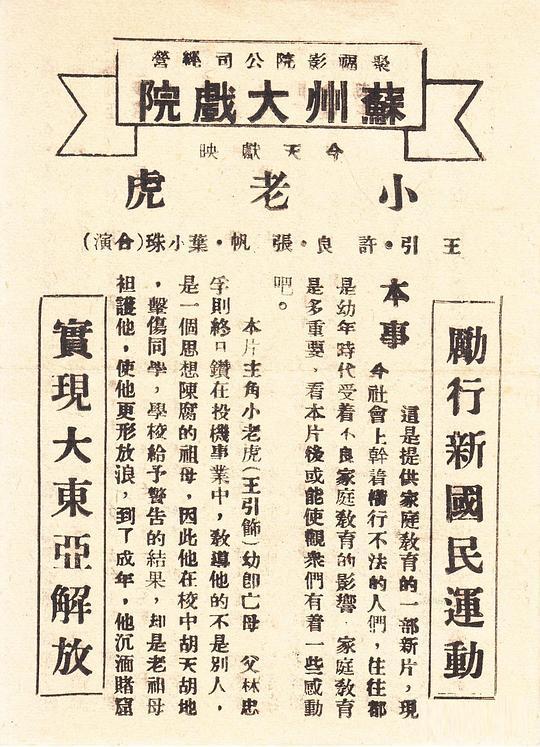 聚福影院公司經營
蘇州大戲院
今天獻映
小老虎
王引・許良・張帆・葉小珠(合演)
勵行新國民運動
本事
這是提供家庭教育的一部新片，現
今社會上幹着橫行不法的人們，往往都
是幼年時代受着不良家庭教育的影響 家庭教育
是多重要，看本片後或能使觀衆們有着一些感動
吧。
本片主角小老虎(王引飾)幼卽亡母 父林忠
孚則終日鑽在投機事業中，教導他的不是別人，
是一個思想陳腐的祖母，因此他在校中胡天胡地
，擊傷同學，學校給予警告的結果，却是老祖母
袒護他，使他更形放浪，到了成年，他沉湎賭窟
實現大東亞解放